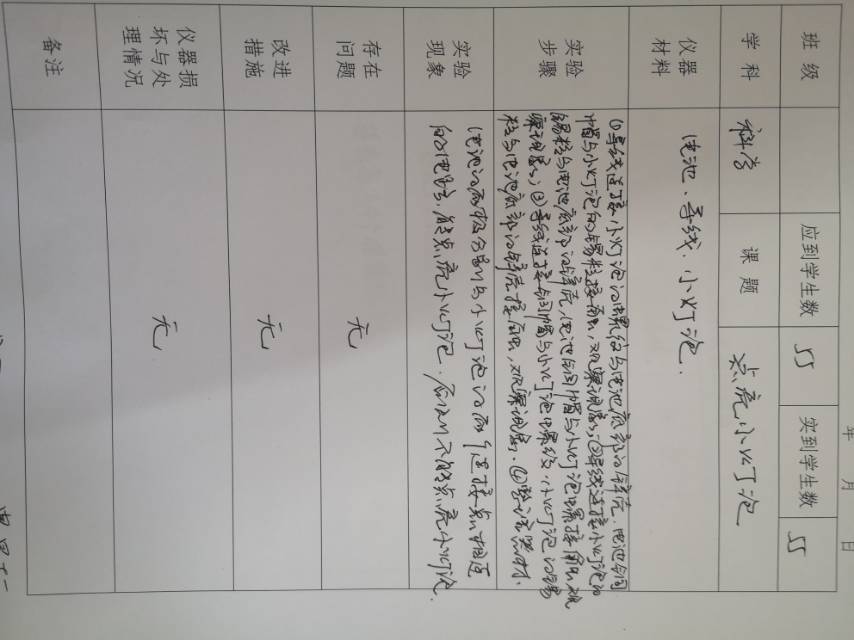 年 月 日
班级 应到学生数 55 实到学生数 55
学科 科学 课题 点亮小灯泡
仪器材料 电池、导线、小灯泡.
实验步骤 ①导线连接小灯泡的螺纹与电池底部的锌壳,电池铜
帽与小灯泡的锡粒接触,观察现象;②导线连接小灯泡的
锡粒与电池底部的锌壳,电池铜帽与小灯泡螺接触,观
察现象;③导线连接铜帽与小灯泡螺纹,小灯泡的锡
粒与电池底部的锌壳接触,观察现象.④整理器材.
实验现象 电池的两极分别与小灯泡的两个连接点相连
的电路,能点亮小灯泡.否则不能点亮小灯泡.
存在问题 无
改进措施 无
仪器损坏与处理情况 无
备注